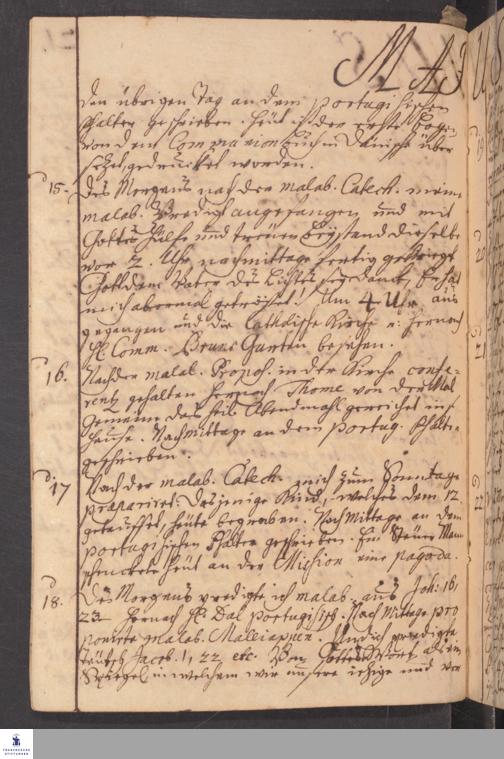 MAJUS
den übrigen Tag an dem portugisischen
Psalter geschrieben. Heut ist der erste Bogen
von dem Communionbuch in Dänisch über
setzet, gedrucket worden.
d. 15. Des Morgens nach der malab. Catech. meine
malab. Predigt angefangen und mit
Gottes Hülfe und treuen Beystand dieselbe
vor 2. Uhr nachmittage fertig gekriegt
Gott dem Vater des Lichtes sey danck, Er hat
mich abermal getröstet. Um 4 Uhr aus
gegangen und die Catholische Kirche u. hernach
H. Comm. Bruns Garten besehen.
d. 16. Nach der malab. Propos. in der Kirche confe-
rentz gehalten hernach Thome von der Mal
Gemeine das heil. Abendmahl gereichet im
Hause. Nachmittage an dem Portug. Psalter
geschrieben.
d. 17 Nach der malab. Catech. mich zum Sonntage
praeparirt. Dasjenige Kind, welches den 12.
getauffet, heute begraben. Nachmittage an dem
portugisischen Psalter geschrieben. Ein Steuer Mann
schenckete heut an der Mission eine pagoda.
d. 18. Des Morgens predigte ich malab. aus Joh. 16,
23 hernach H. Dal portugisisch. Nachmittage pro
ponirte malab. Maleiappen. Und ich predigte
teutsch Jacob. 1, 22 etc. Von Gottes Wort als ein
Spiegel in welchem wir unsere itzige und vor
19
20
21
22
FRANCKESCHE
STIFTUNGEN